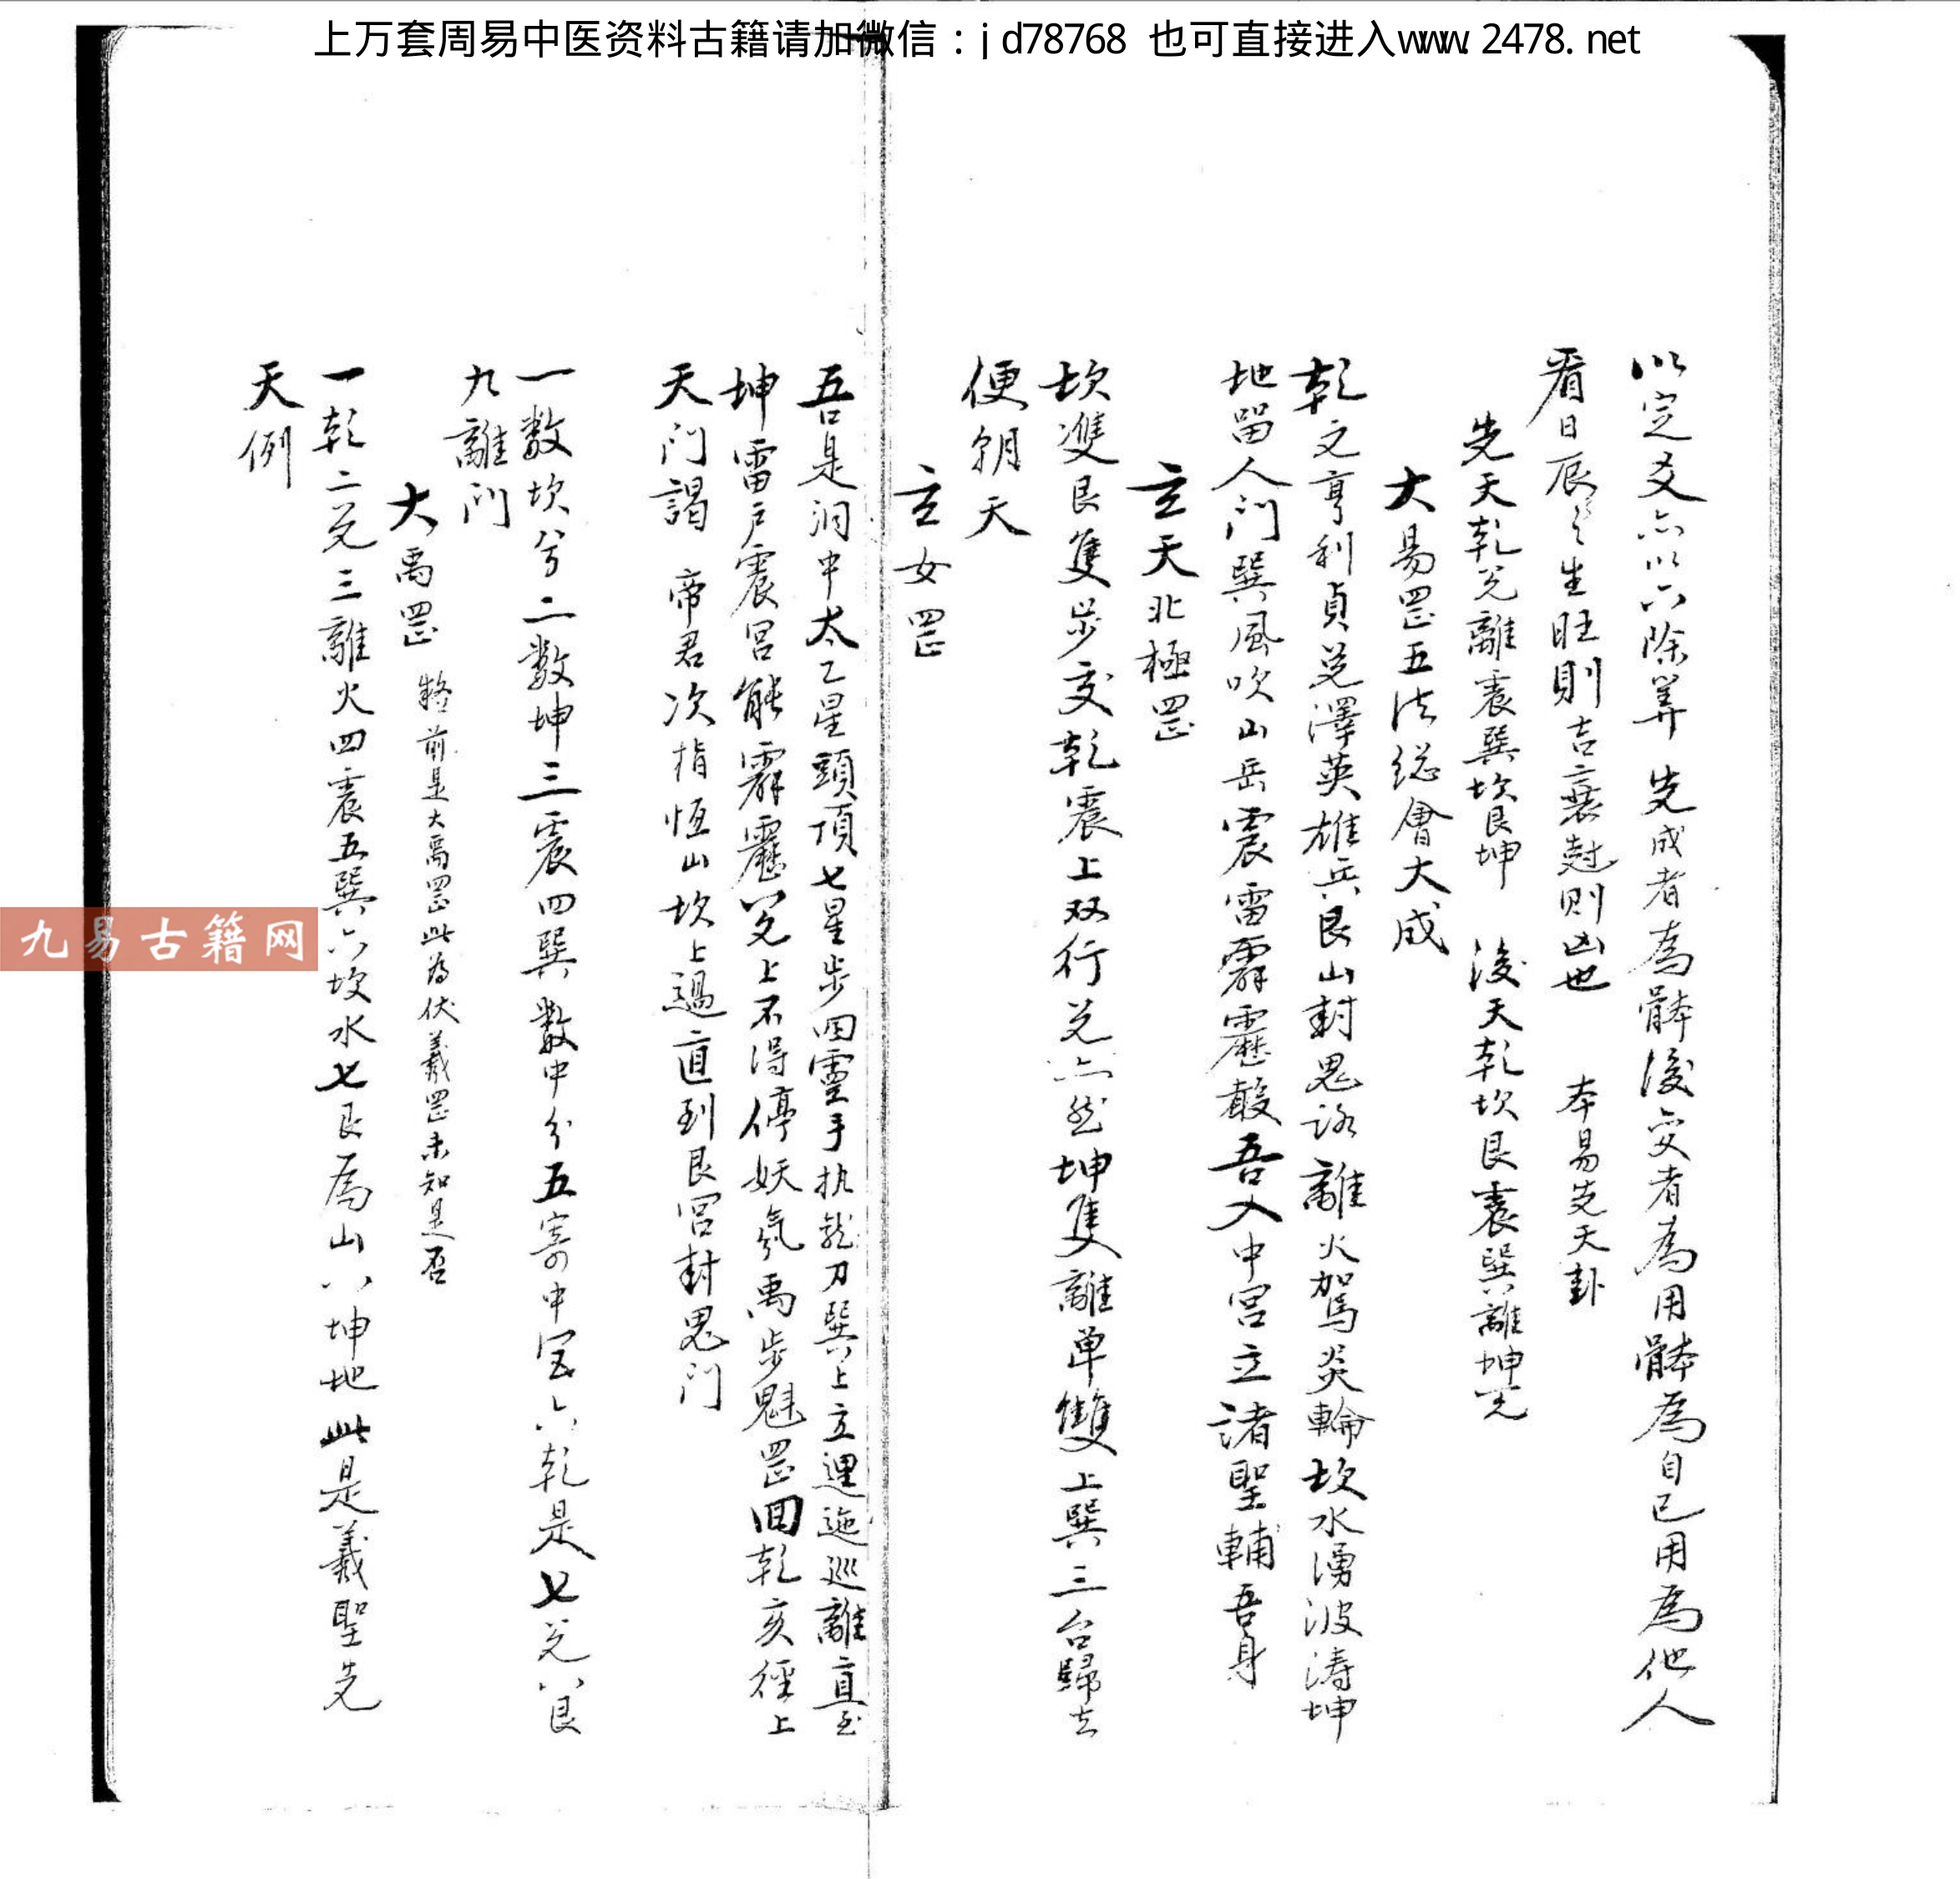 上万套周易中医资料古籍请加微信：jd78768 也可直接进入www.2478.net
以定爻六以六除算 先成者為骵後变者為用骵為自己用為他人
看日辰之生旺則吉衰尅则凶也 本易先天卦
先天乾兑離震巽坎艮坤 後天乾坎艮震巽離坤兑
大易罡五法総會大成
乾文亨利貞兑澤英雄兵艮山封鬼路離火駕炎輪坎水湧波涛坤
地留人門巽風吹山岳震雷霹靂轂吾入中宫立諸聖輔吾身
玄天北極罡
坎雙艮隻步交乾震上双行兑亦然坤隻離单雙上巽三台歸去
便朝天
玄女罡
吾是洞中太乙星頭頂七星步四靈手执龍刀巽上立逦迤巡離直至
坤雷户震宫能霹靂兑上不得停妖氛禹步魁罡回乾亥徑上
天門謁 帝君次指恒山坎上過直到艮宫封鬼門
一数坎兮二数坤三震四巽数中分五寄中宫六乾是七兑八艮
九離门
大禹罡 前是大禹罡此為伏羲罡未知是否
一乾二兑三離火四震五巽六坎水七艮為山八坤地此是羲聖先
天例
九易古籍网